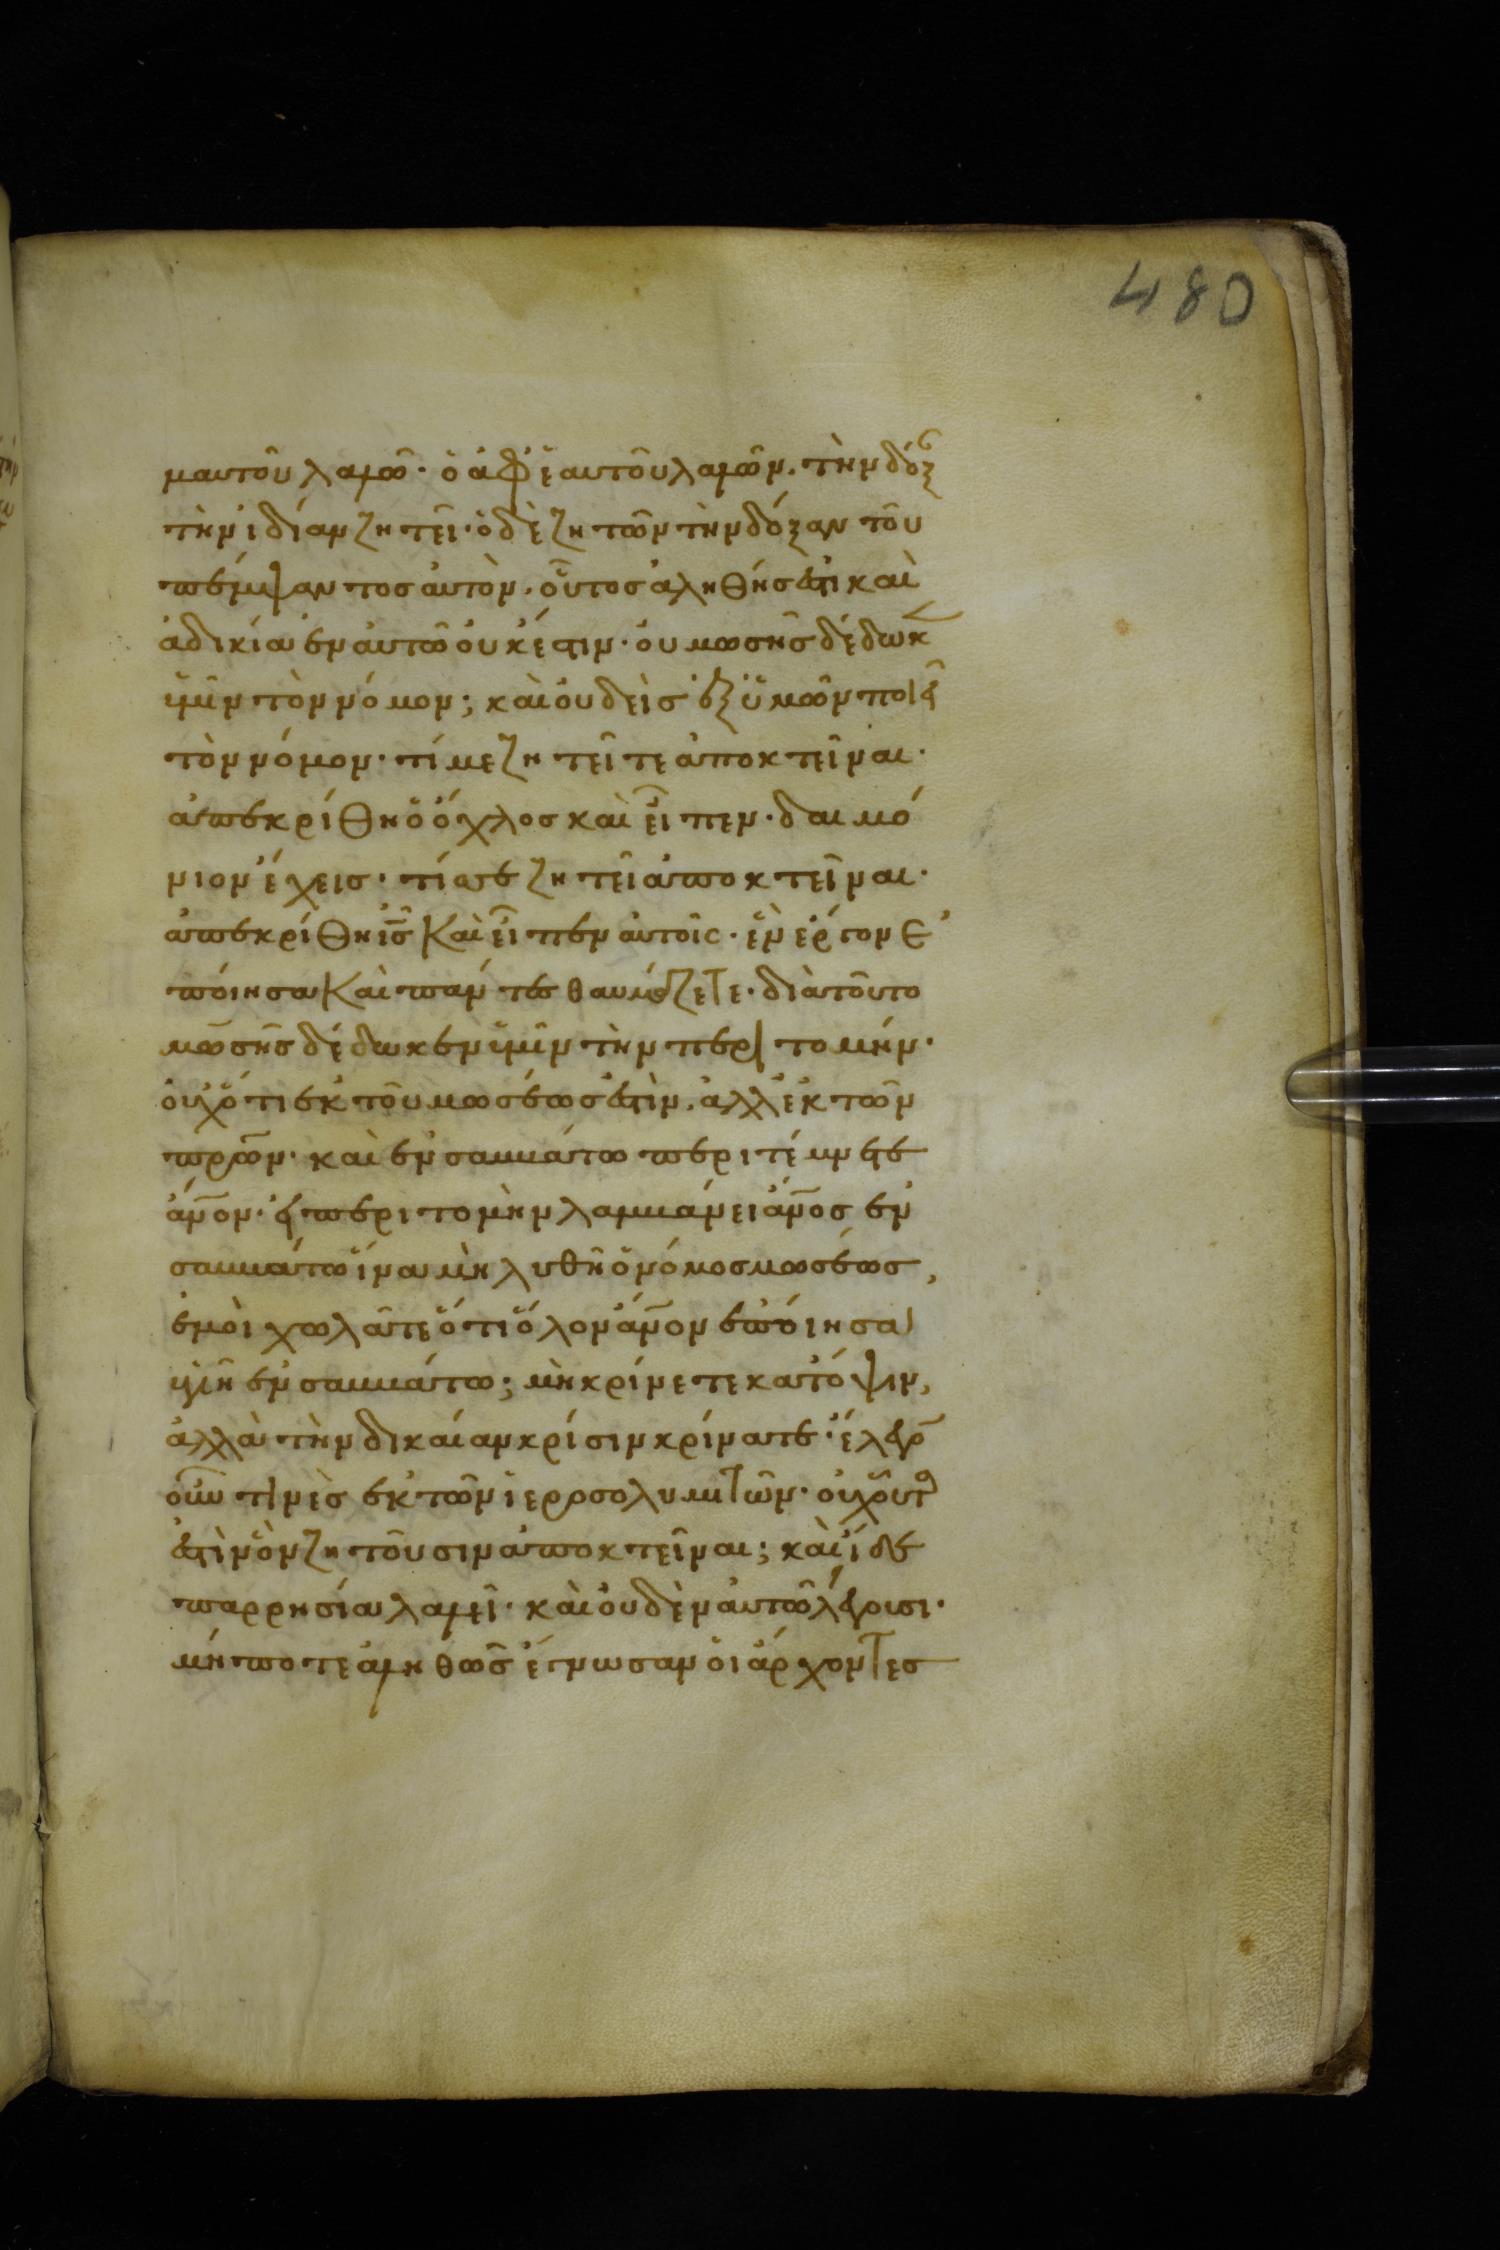 480
μαυτοῦ λαλῶ· ὁ ἀφ' ἑαυτοῦ λαλῶν, τὴν δόξ
τὴν ἰδίαν ζητεῖ· ὁ δὲ ζητῶν τὴν δόξαν τοῦ
πέμψαντος αὐτὸν, οὗτος ἀληθής ἐστι καὶ
ἀδικία ἐν αὐτῶ οὐκ ἔστιν· οὐ μωσῆς δέδωκ
ὑμῖν τὸν νόμον; καὶ οὐδεὶς ἐξ ὑμῶν ποιεῖ
τὸν νόμον· τί με ζητεῖτε ἀποκτεῖναι·
ἀπεκρίθη ὁ ὄχλος καὶ εἶπεν· δαιμό
νιον ἔχεις· τίς σε ζητεῖ ἀποκτεῖναι·
ἀπεκρίθη ις καὶ εἶπεν αὐτοῖς· ἓν ἔργον ἐ
ποίησα καὶ πάντες θαυμάζετε· διὰ τοῦτο
μωσῆς δέδωκεν ὑμῖν τὴν περιτομήν·
οὐχ ὅτι ἐκ τοῦ μωσέως ἐστὶν, ἀλλ' ἐκ τῶν
πρων· καὶ ἐν σαββάτω περιτέμνετε
ἄνον· εἰ περιτομὴν λαμβάνει ἄνος ἐν
σαββάτω ἵνα μὴ λυθῆ ὁ νόμος μωσέως,
ἐμοὶ χολᾶτε ὅτι ὅλον ἄνον ἐποίησα
ὑγιῆ ἐν σαββάτω; μὴ κρίνετε κατ' ὄψιν,
ἀλλὰ τὴν δικαίαν κρίσιν κρίνατε· ἔλεγον
οὖν τινὲς ἐκ τῶν ἱεροσολυμιτῶν· οὐχ οὗτος
ἐστὶν ὃν ζητοῦσιν ἀποκτεῖναι; καὶ ἴδε
παρρησία λαλεῖ· καὶ οὐδὲν αὐτῶ λέγουσι·
μήποτε ἀληθῶς ἔγνωσαν οἱ ἄρχοντες